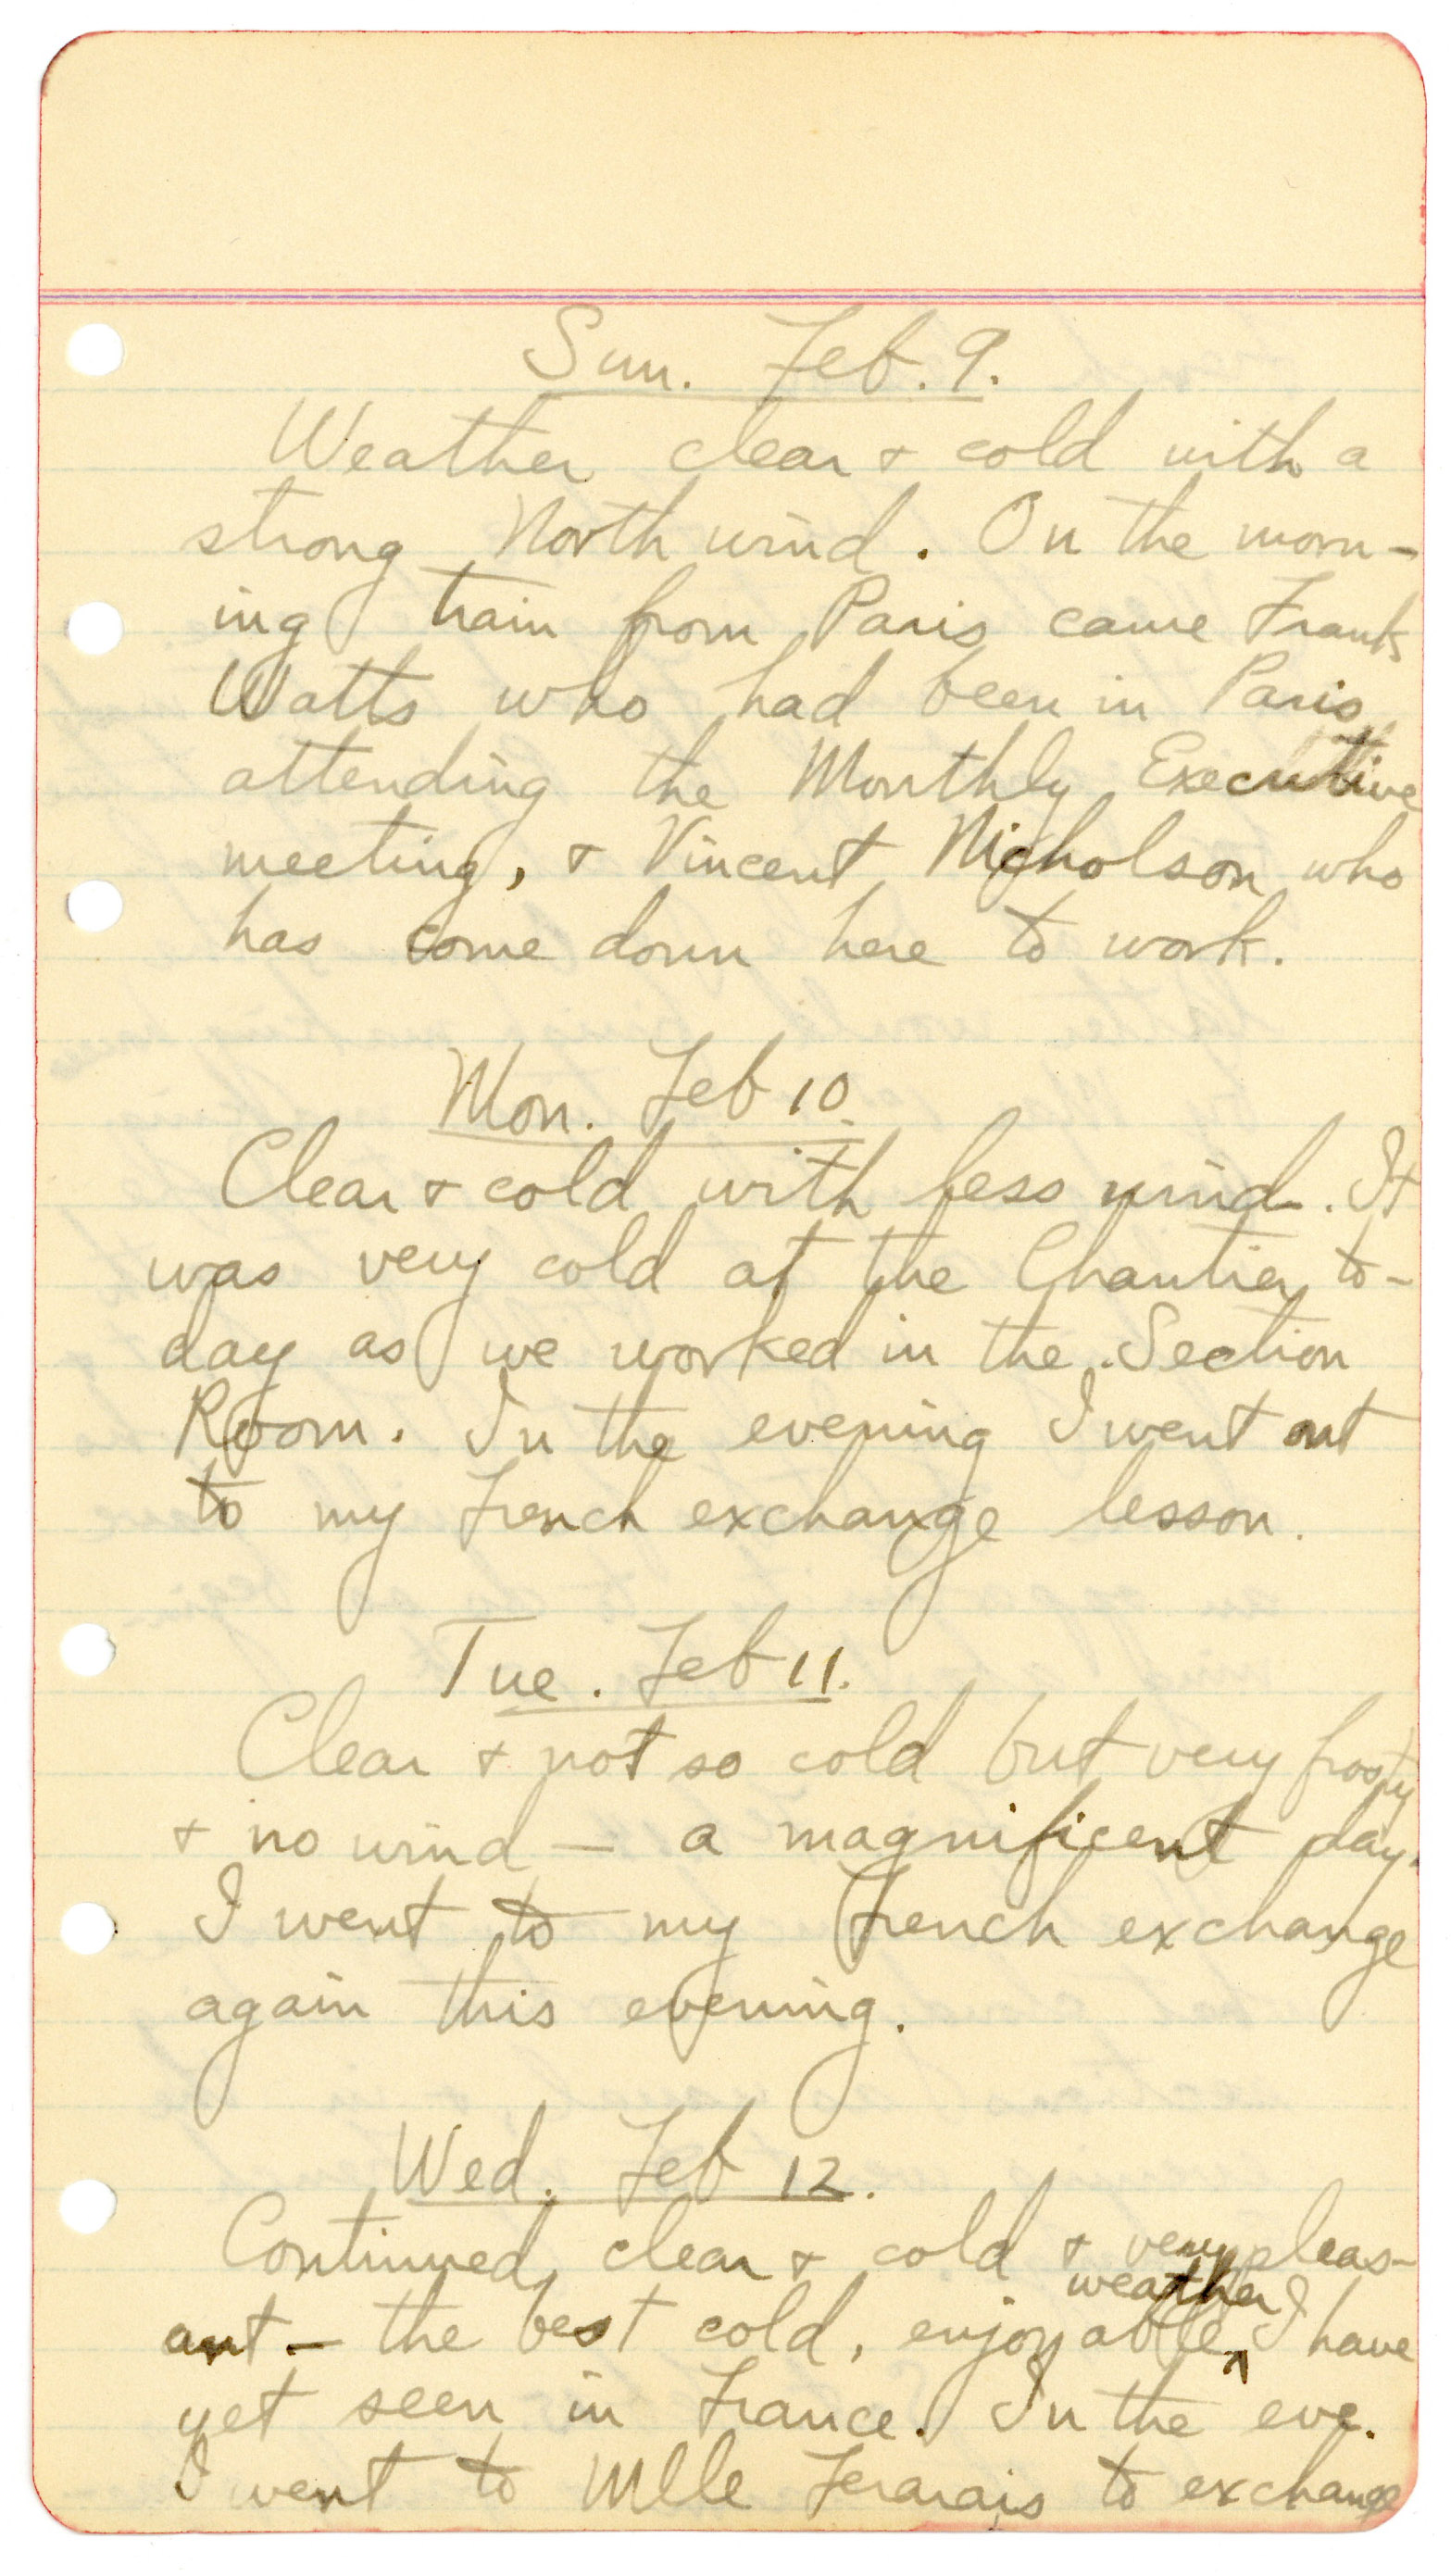 Sun. Feb. 9.
Weather clear + cold with a
strong North wind. On the morn-
ing train from Paris came Frank
Watts who had been in Paris
attending the Monthly Executive
meeting, + Vincent Nicholson who
has come down here to work.
Mon. Feb 10.
Clear + cold with less wind. It
was very cold at the Chantier to-
day as we worked in the Section
Room. In the evening I went out
to my French exchange lesson.
Tue. Feb 11.
Clear + not so cold but very frosty
+ no wind — a magnificent day.
I went to my French exchange
again this evening.
Wed. Feb 12.
Continued clear + cold + very pleas-
weather
ant — the best cold, enjoyable ^ I have
yet seen in France. In the eve.
I went to Mlle to exchange